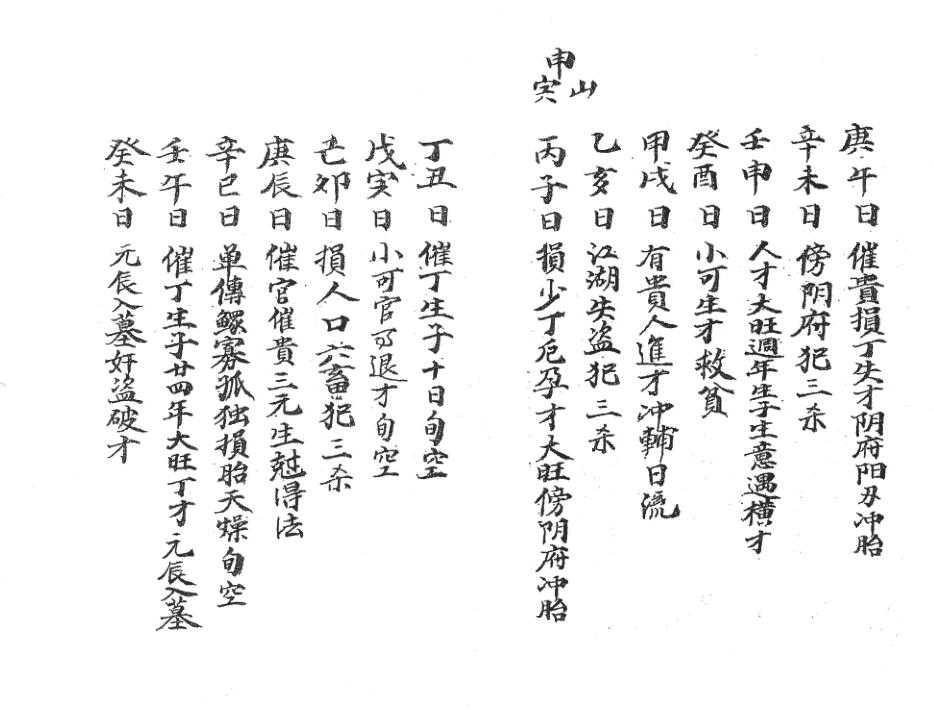 庚午日催貴損丁失才阴府阳刃冲胎
辛未日傍阴府犯三杀
壬申日人才大旺週年生子生意遇横才
癸酉日小可生才救貧
甲戌日有貴人進才冲輔日流
乙亥日江湖失盗犯三杀
丙子日損少丁厄孕才大旺傍阴府冲胎
申山
寅
丁丑日催丁生子十日旬空
戊寅日小可官司退才旬空
己卯日損人口六畜犯三杀
庚辰日催官催貴三元生尅得法
辛巳日单傳鰥寡孤独損胎天燥旬空
壬午日催丁生子廿四年大旺丁才元辰入墓
癸未日元辰入墓奸盗破才